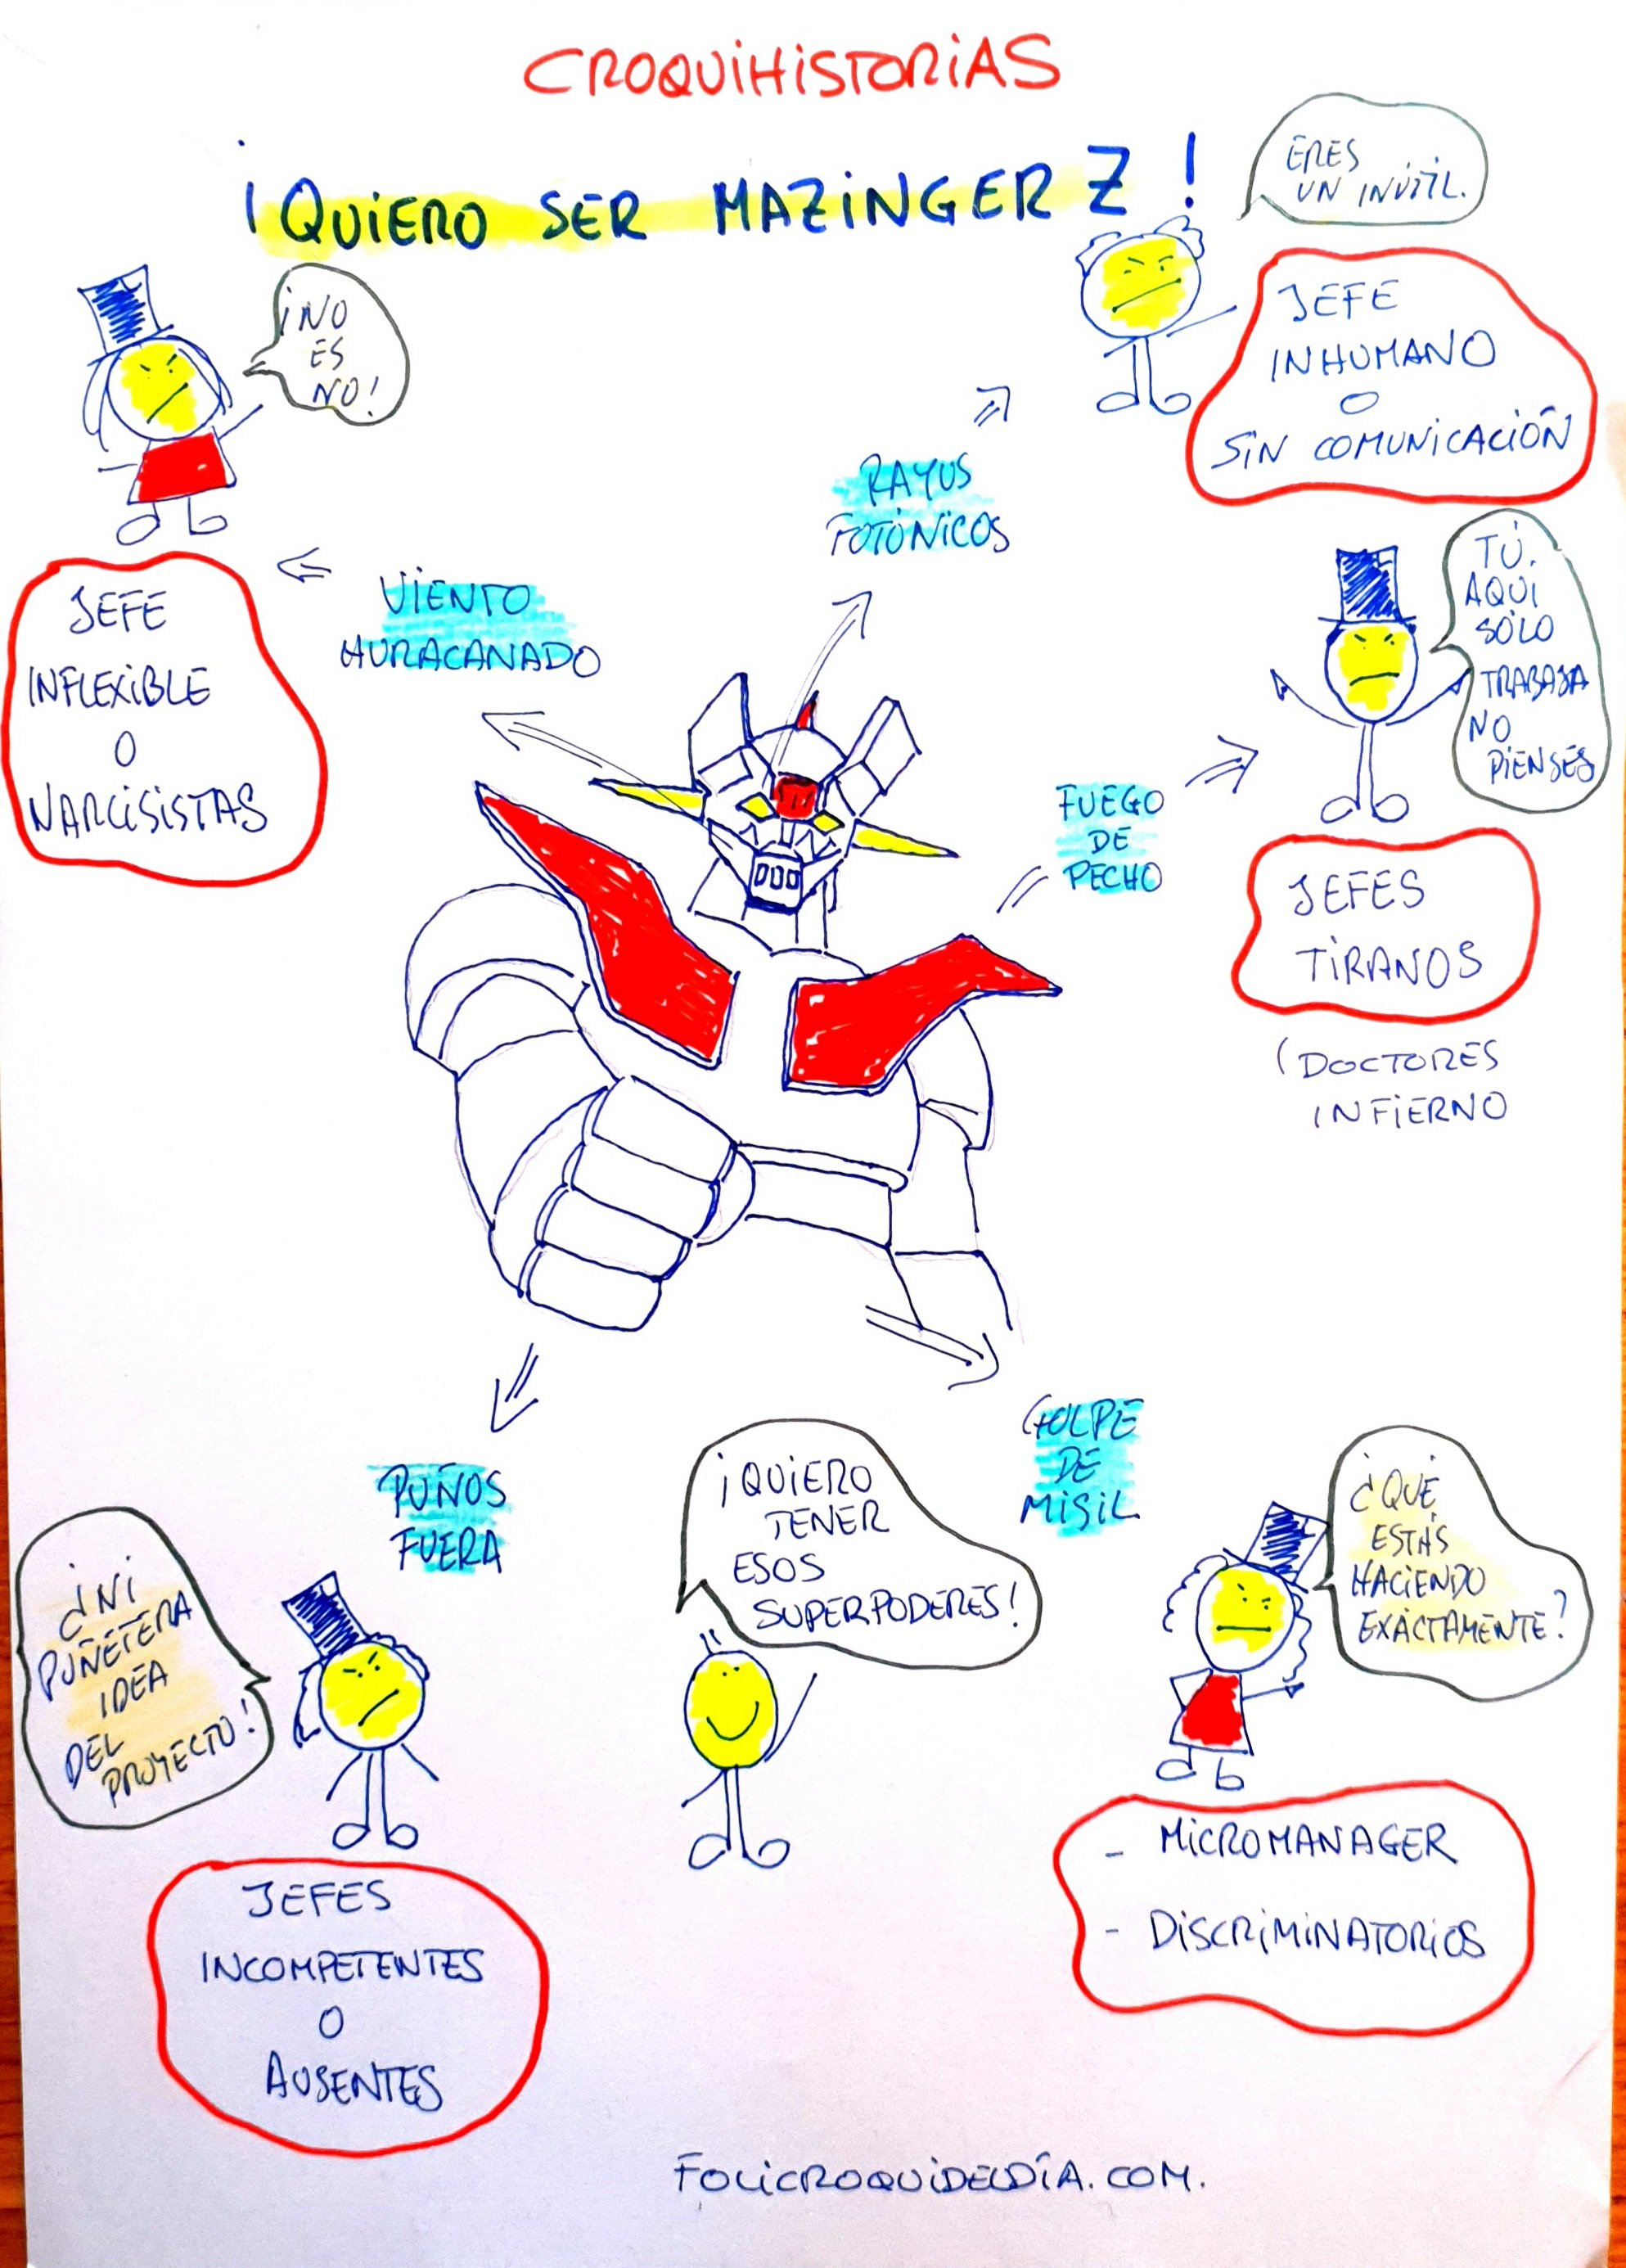 CROQUiHiSTORiAS
¡QUiERO SER MAZiNGER Z!
ERES
UN INÚTIL.
¡NO
ES
NO!
JEFE
INHUMANO
O
SiN COMUNiCACiÓN
RAYOS
FOTÓNiCOS
ViENTO
HURACANADO
JEFE
INFLEXiBLE
O
NARCiSiSTAS
TÚ.
AQUÍ
SÓLO
TRABAJA
NO
PiENSES
FUEGO
DE
PECHO
JEFES
TiRANOS
(DOCTORES
INFiERNO
PUÑOS
FUERA
GOLPE
DE
MiSiL
¡QUiERO
TENER
ESOS
SUPERPODERES!
¿QUÉ
ESTÁS
HACiENDO
EXÁCTAMENTE?
¿Ni
PUÑETERA
IDEA
DEL
PROYECTO!
- MiCROMANAGER
- DiSCRiMiNATORiOS
JEFES
INCOMPETENTES
O
AUSENTES
FOLiCROQUiDELDÍA.COM.